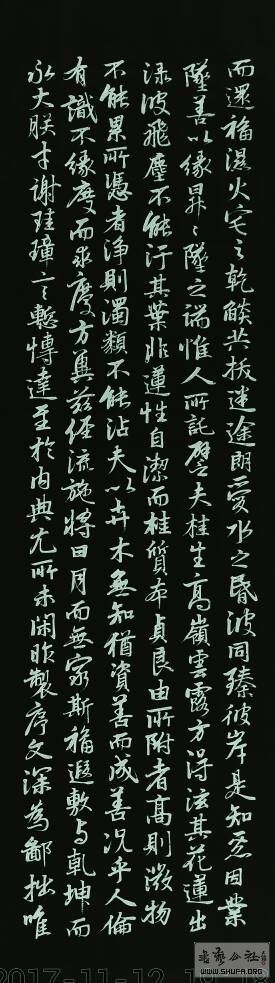 而還福濕火宅之乾燄共拔迷途朗愛水之昏波同臻彼岸是知惡因業
墜善以緣昇々墜之端惟人所託譬夫桂生高嶺雲露方得泫其花蓮出
淥波飛塵不能汙其葉非蓮性自潔而桂質本貞良由所附者高則微物
不能累所憑者淨則濁類不能沾夫以卉木無知猶資善而成善況乎人倫
有識不緣慶而求慶方冀茲經流施將日月而無窮斯福遐敷與乾坤而
永大朕才謝珪璋言慙博達至於內典尤所未閑昨製序文深為鄙拙唯
書藝公社
WWW.SHUFA.ORG
2017-11-12